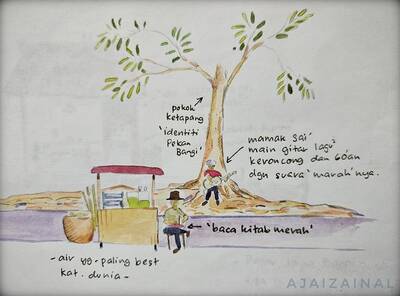 pokok
ketapang
'identiti
Pekan
Bangi'
mamak sai'
main gitar lagu²
keroncong dan 60'an
dgn suara 'marah'nya.
'baca kitab merah'
- air yg paling best
kat dunia -
AJAIZAINAL